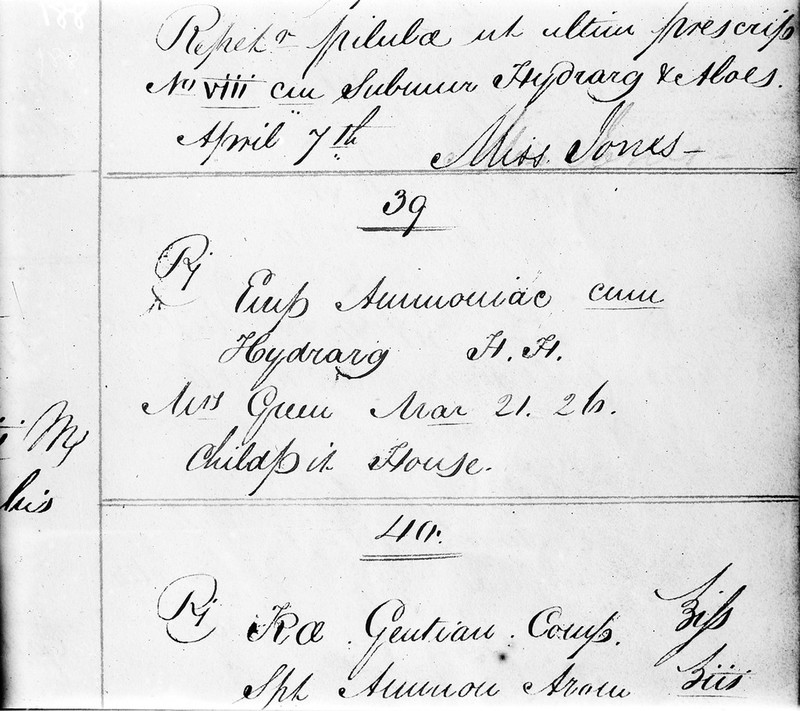 Repetr pilulæ ut ultim prescrip
No viii cm Submur Hydrarg & Aloes.
April 7th Miss Jones
39
Rj
Emp Ammoniac cum
Hydrarg H. H.
Mrs Green Mar 21. 26.
House.
40.
Rj Træ Gentian. Comp. ʒiß
Spt Ammon Arom ʒiii